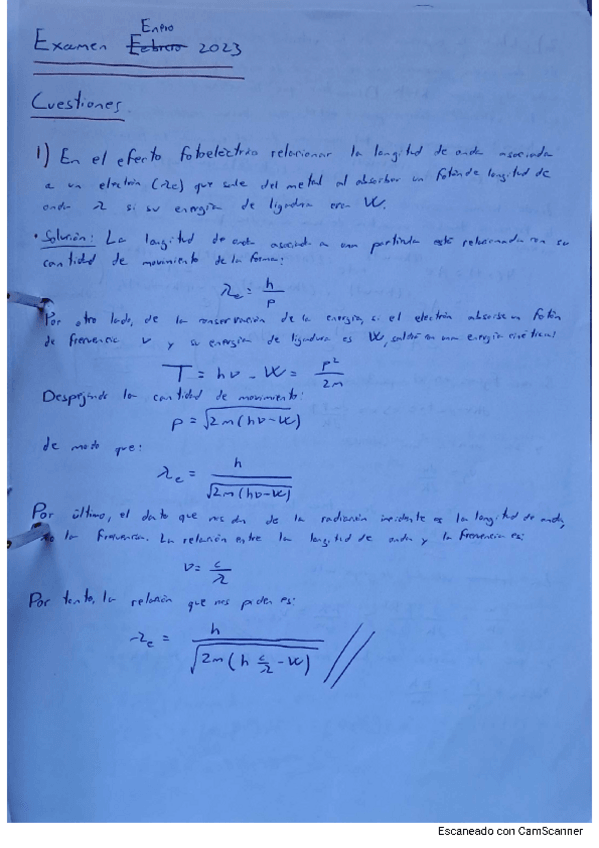 Enero
Examen Febrero 2023
Cuestiones
1) En el efecto fotoeléctrico relacionar la longitud de onda asociada
a un electrón (λe) que sale del metal al absorber un fotón de longitud de
onda λ si su energía de ligadura era W.
• Solución: La longitud de onda asociada a una partícula está relacionada con su
cantidad de movimiento de la forma:
λe = h/p
Por otro lado, de la conservación de la energía, si el electrón absorbe un fotón
de frecuencia ν y su energía de ligadura es W, saldrá con una energía cinética:
T = hν - W = p²/2m
Despejando la cantidad de movimiento:
p = √2m(hν-W)
de modo que:
λe = h/√2m(hν-W)
Por último, el dato que nos dan de la radiación incidente es la longitud de onda,
no la frecuencia. La relación entre la longitud de onda y la frecuencia es:
ν = c/λ
Por tanto, la relación que nos piden es:
λe = h/√2m(h c/λ - W) //
Escaneado con CamScanner